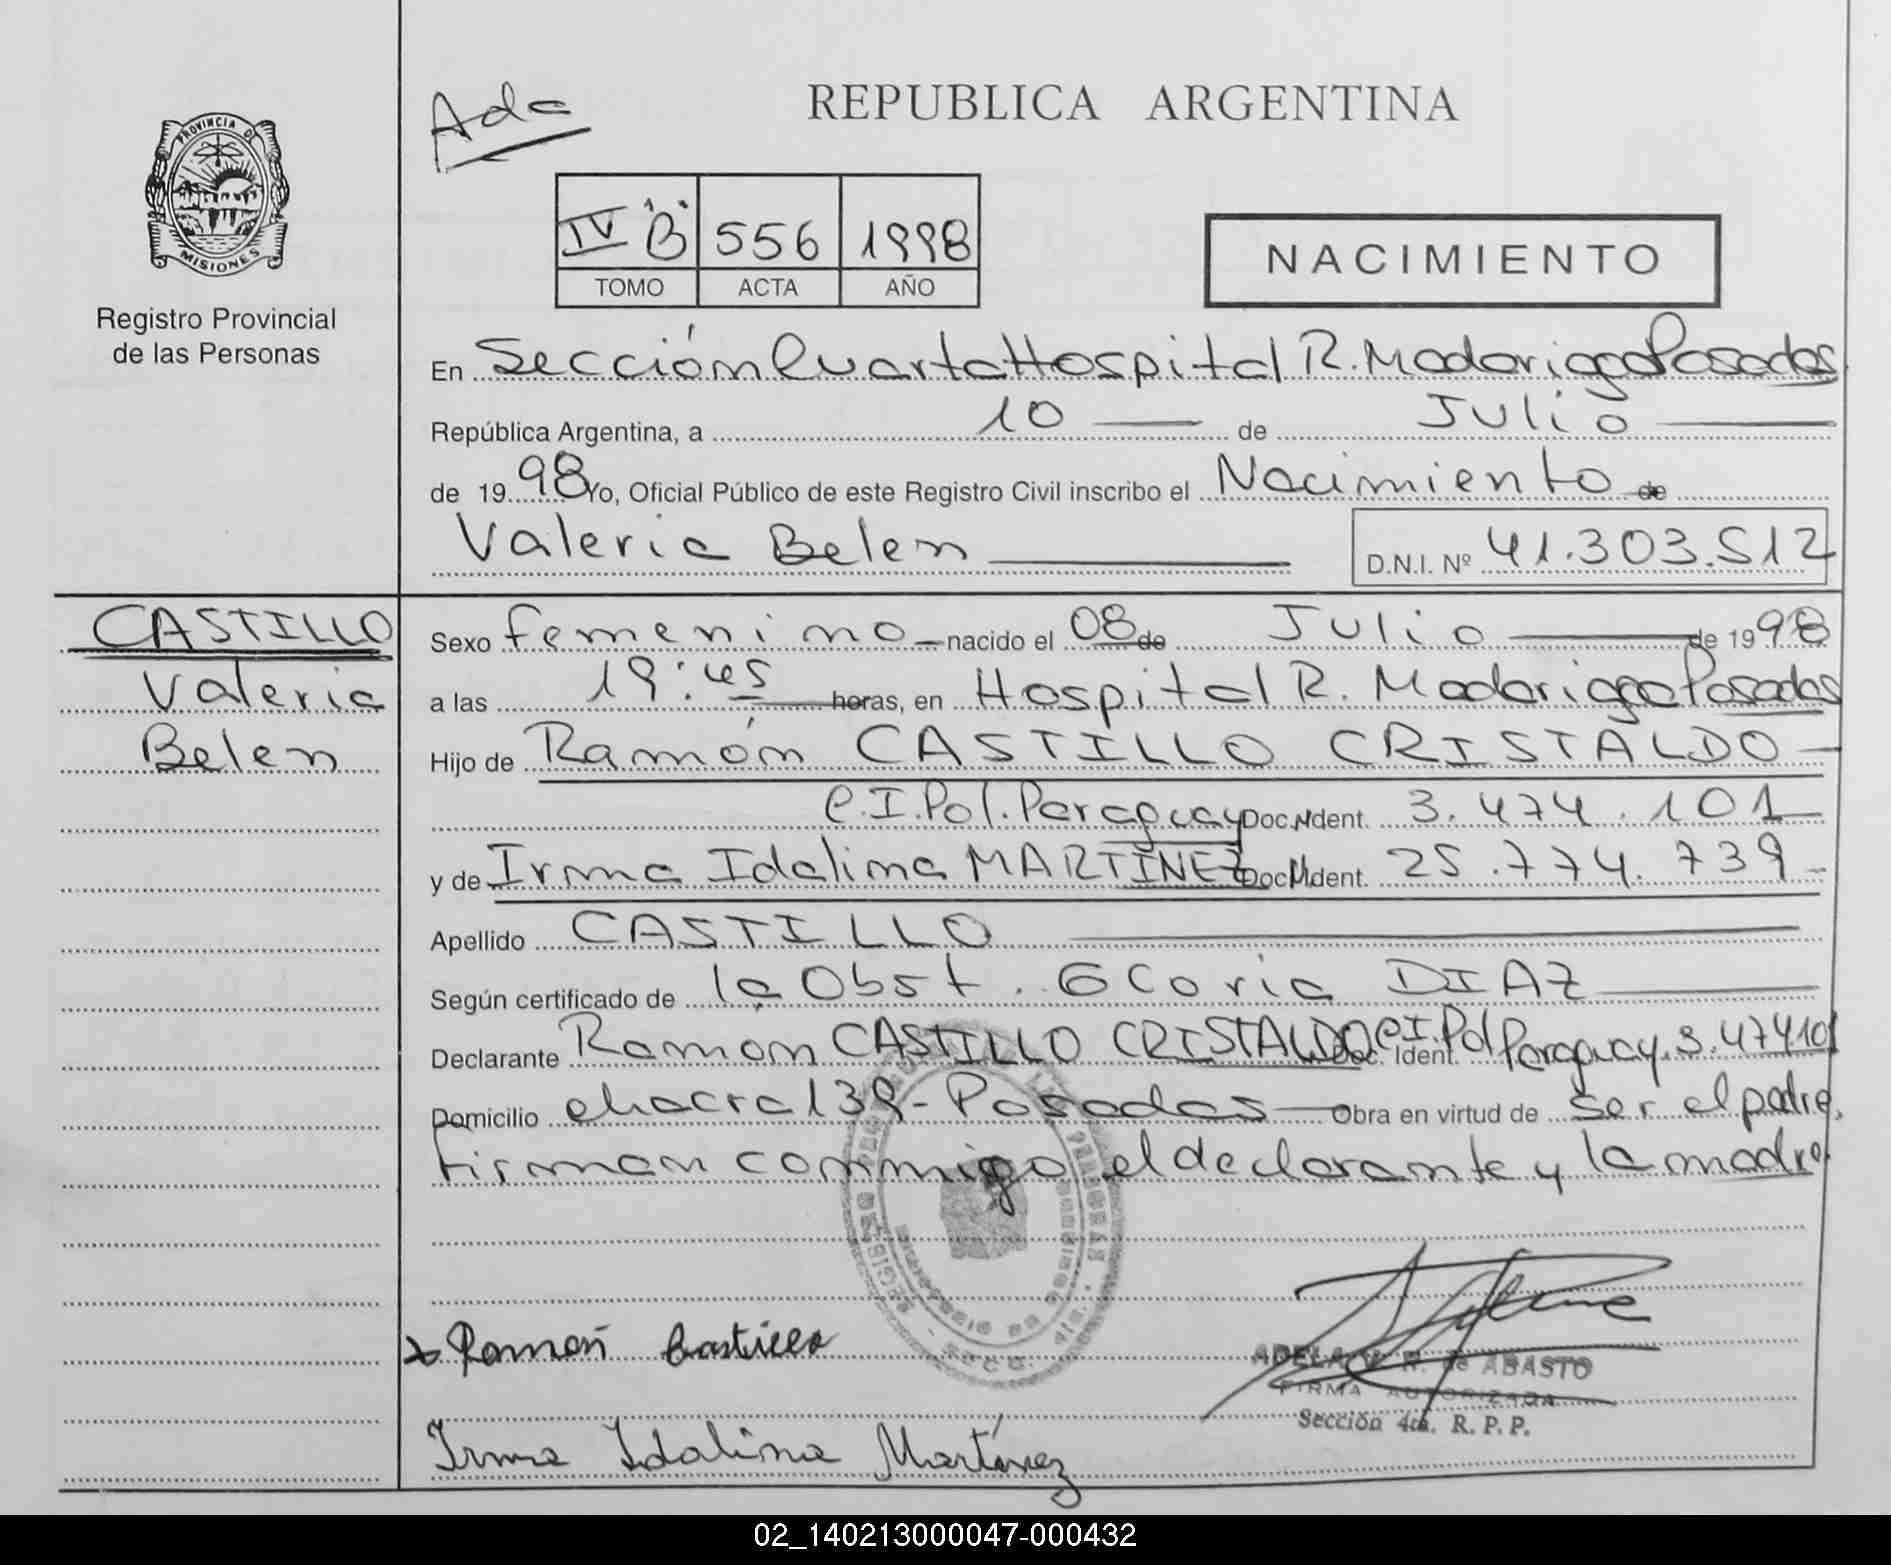 PROVINCIA DE
MISIONES
Registro Provincial
de las Personas
Ada
REPUBLICA ARGENTINA
IV "B" 556 1998
TOMO ACTA AÑO
NACIMIENTO
En Sección Cuarta Hospital R. Madariaga Posadas
República Argentina, a 10 de Julio
de 1998 Yo, Oficial Público de este Registro Civil inscribo el Nacimiento de
Valeria Belen
D.N.I. Nº 41.303.512
CASTILLO
Valeria
Belen
Sexo femenino nacido el 08 de Julio de 1998
a las 19:45 horas, en Hospital R. Madariaga Posadas
Hijo de Ramón CASTILLO CRISTALDO
C.I.Pol.Paraguay Doc. Ident. 3.474.101
y de Irma Idalina MARTINEZ Doc. Ident. 25.774.739
Apellido CASTILLO
Según certificado de la Obst. Gloria DIAZ
Declarante Ramon CASTILLO CRISTALDO C.I.Pol Paraguay 3.474.101 Doc. Ident.
Domicilio chacra 139 - Posadas Obra en virtud de ser el padre,
firman conmigo el declarante y la madre.
Ramon Castillo
ADELA de ABASTO
FIRMA AUTORIZADA
Sección 4ta. R. P. P.
Irma Idalina Martínez
02_140213000047-000432